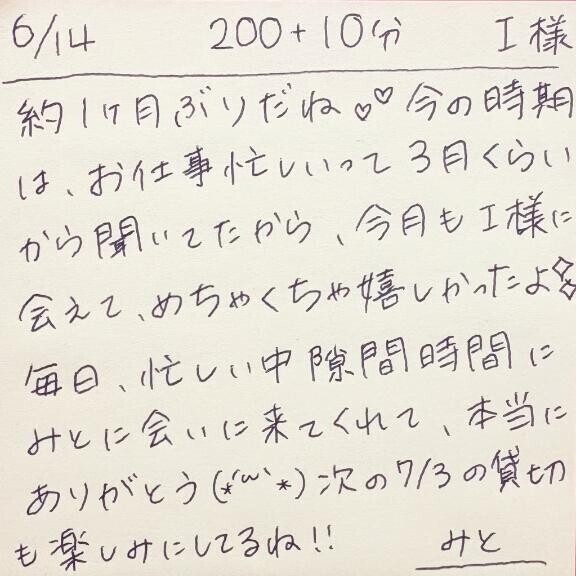 6/14 200+10分 I様
約1ヶ月ぶりだね♡♡今の時期
は、お仕事忙しいって3月くらい
から聞いてたから、今月もI様に
会えて、めちゃくちゃ嬉しかったよ✧✧
毎日、忙しい中隙間時間に
みとに会いに来てくれて、本当に
ありがとう(*´ω`*)次の7/3の貸切
も楽しみにしてるね!!
みと